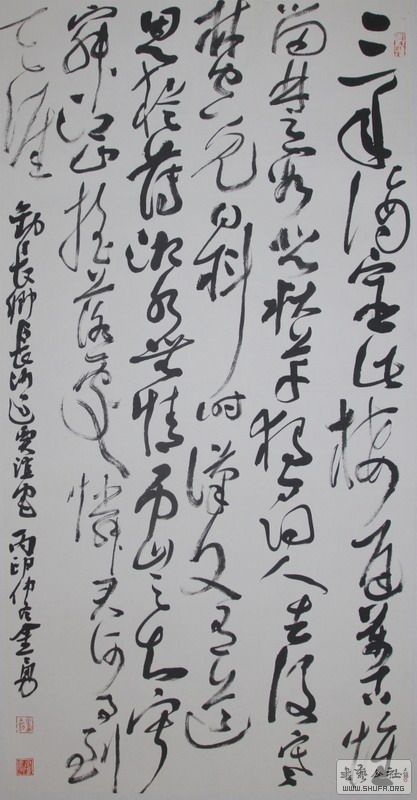 三年謫宦此棲遲萬古惟
留楚客悲秋草獨尋人去後寒
林空見日斜時漢文有道
恩猶薄湘水無情弔豈知寂
寂江山搖落處憐君何事到
天涯
劉長卿長沙過賈誼宅 丙 仲冬
WWW.SHUFA.ORG